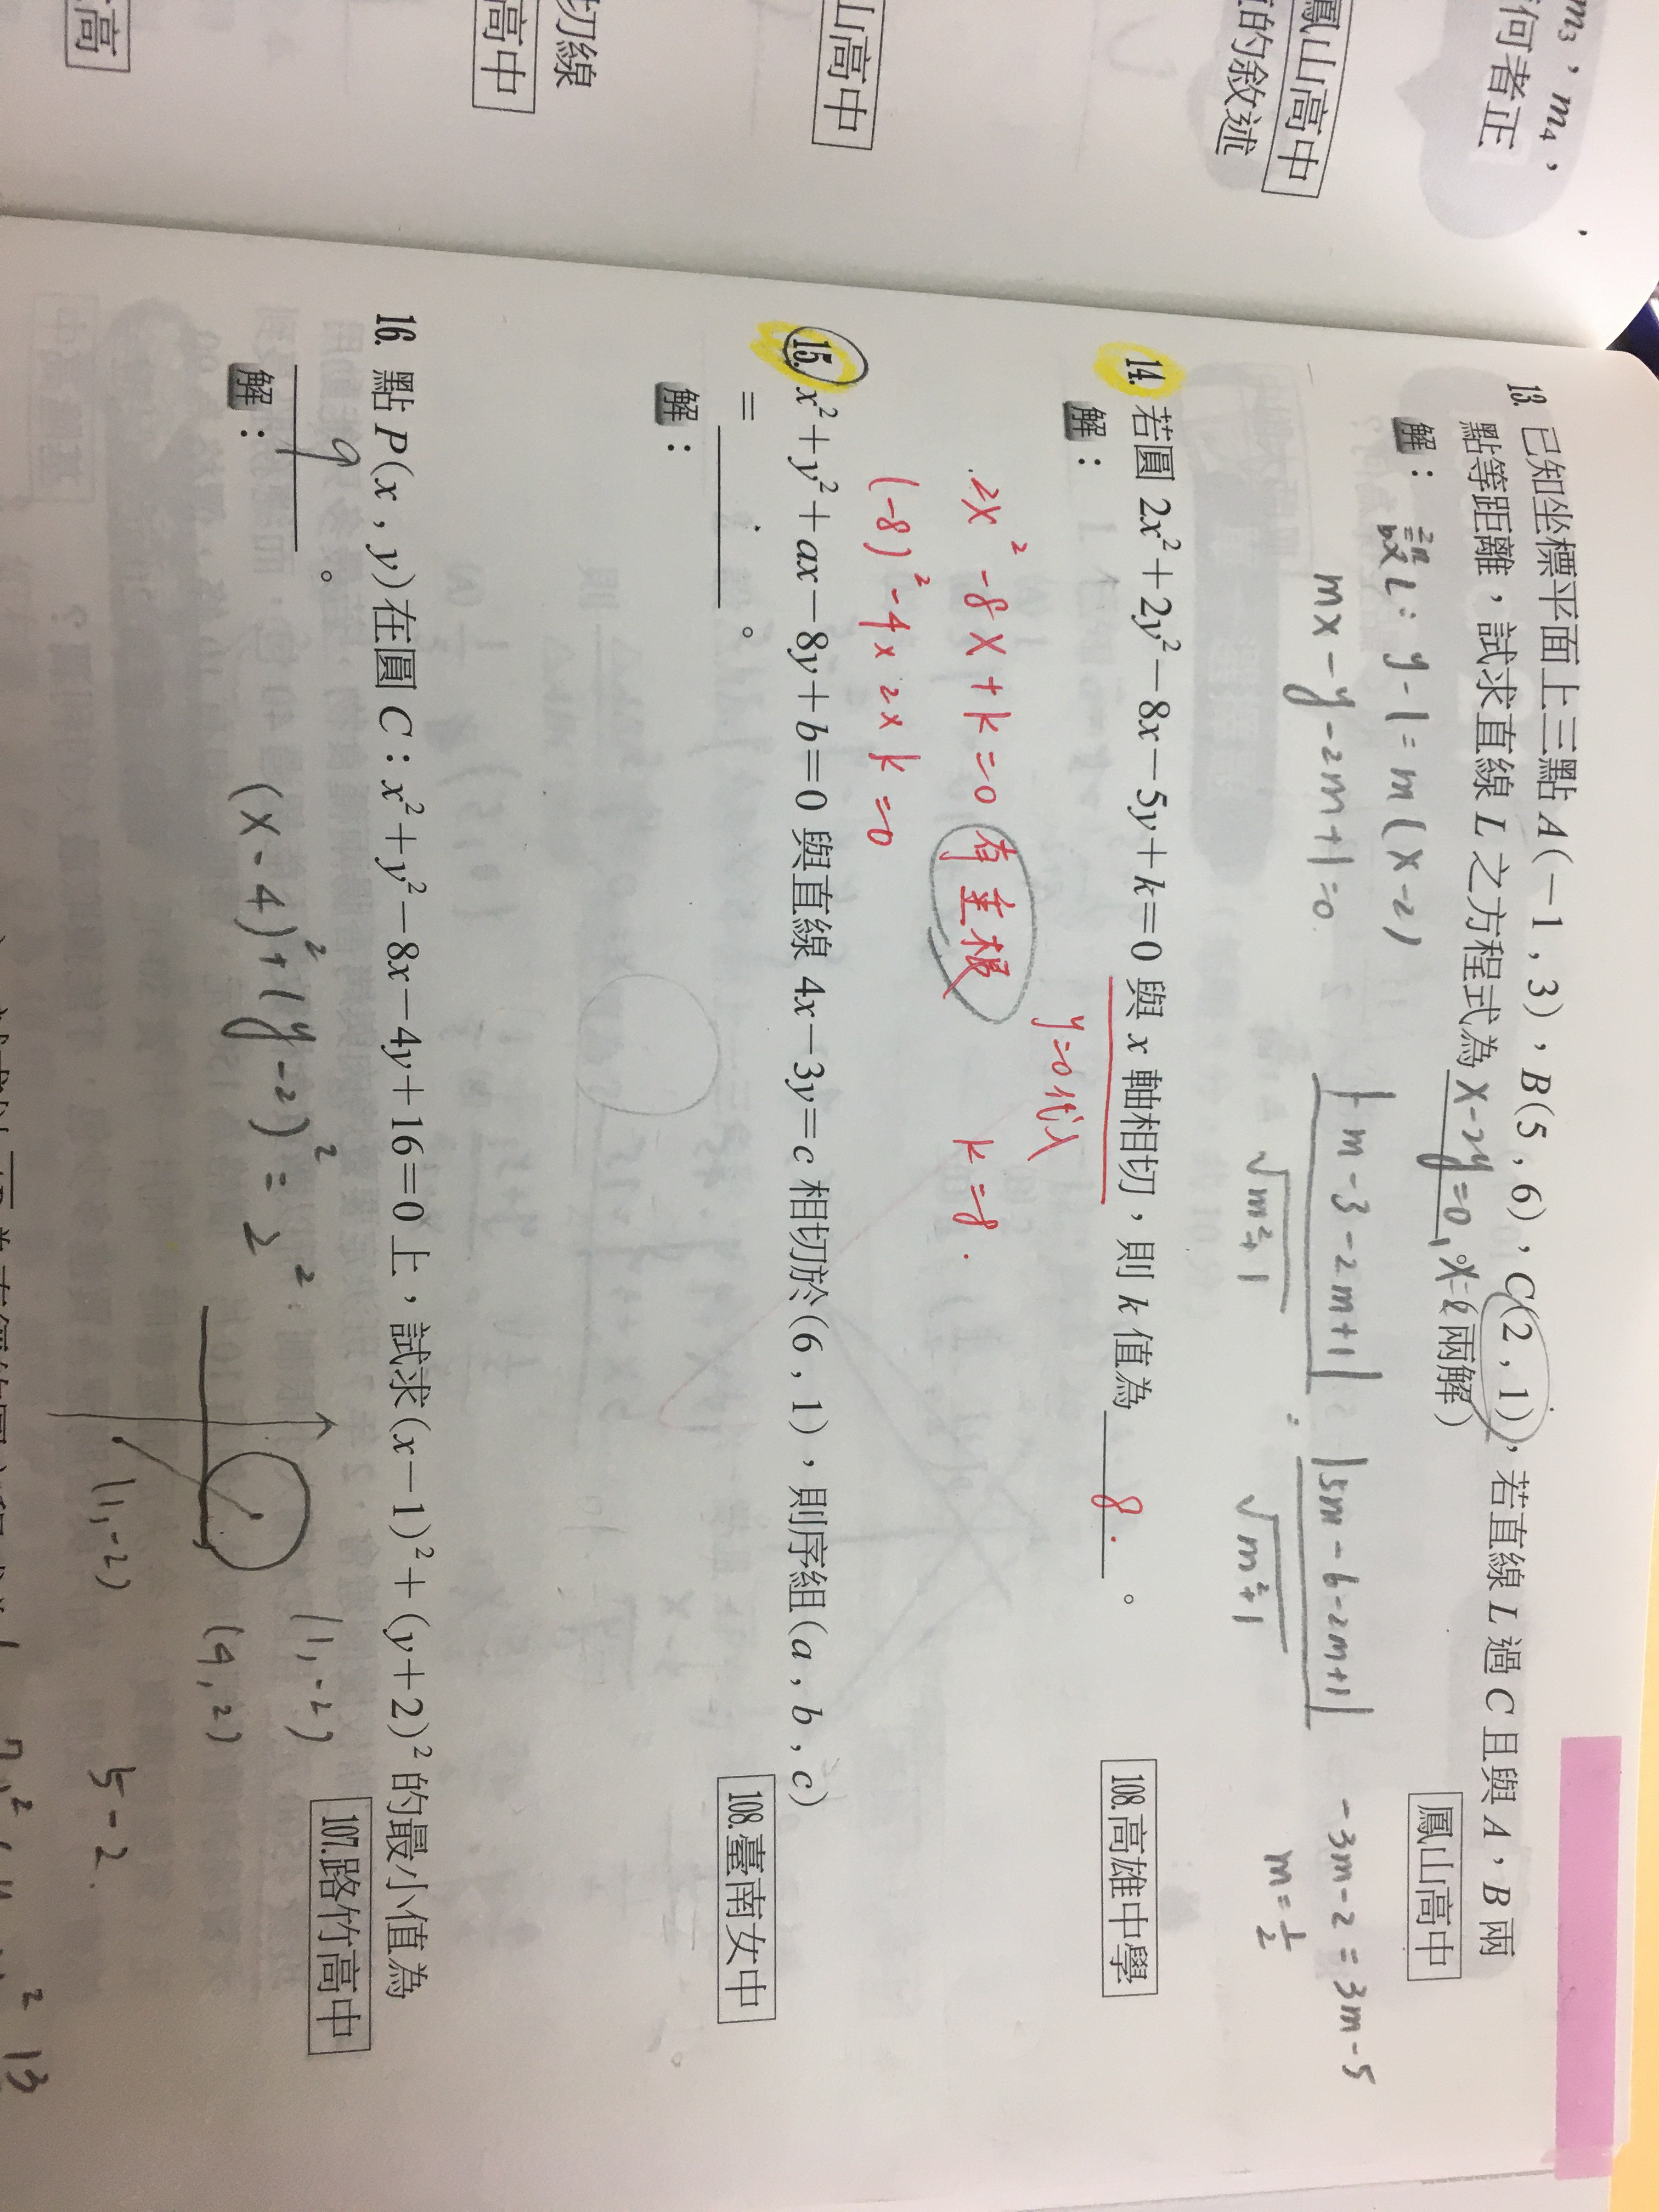 m₃，m₄，
何者正
鳳山高中
的敘述
山高中
切線
高中
高
13. 已知坐標平面上三點 A(－1 , 3)，B(5 , 6)，C(2 , 1)，若直線 L 過 C 且與 A，B 兩
點等距離，試求直線 L 之方程式為 x-2y=0, x=2。(兩解)
鳳山高中
解：
L: y-1=m(x-2)
mx-y-2m+1=0
|-m-3-2m+1|
√m²+1
=
|5m-6-2m+1|
√m²+1
-3m-2=3m-5
m=1/2
14. 若圓 2x²＋2y²－8x－5y＋k＝0 與 x 軸相切，則 k 值為 8 。
108.高雄中學
解：
y=0代入
2x²-8x+k=0 有重根
k=8.
(-8)²-4×2×k=0
15. x²＋y²＋ax－8y＋b＝0 與直線 4x－3y＝c 相切於(6 , 1)，則序組(a , b , c)
＝ 。
108.臺南女中
解：
16. 點 P(x , y)在圓 C：x²＋y²－8x－4y＋16＝0 上，試求(x－1)²＋(y＋2)²的最小值為
9 。
107.路竹高中
解：
(x-4)²+(y-2)²=2²
(1,-2)
(4,2)
(1,-2)
5-2